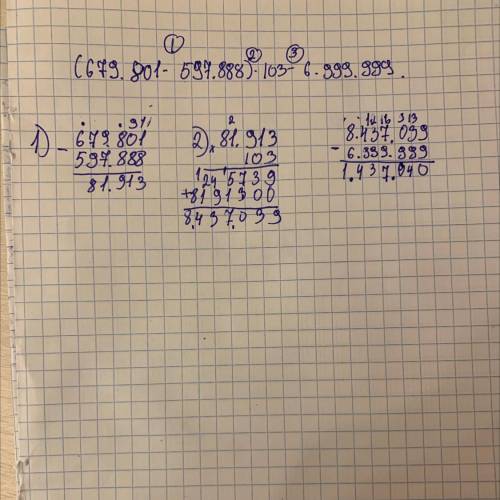 ① ② ③
(679.801 - 597.888) · 103 - 6.999.999.
1) - 679.801
597.888
81.913
2) × 81.913
103
245739
+ 8191300
8.437.039
- 8.437.039
6.999.999
1.437.040